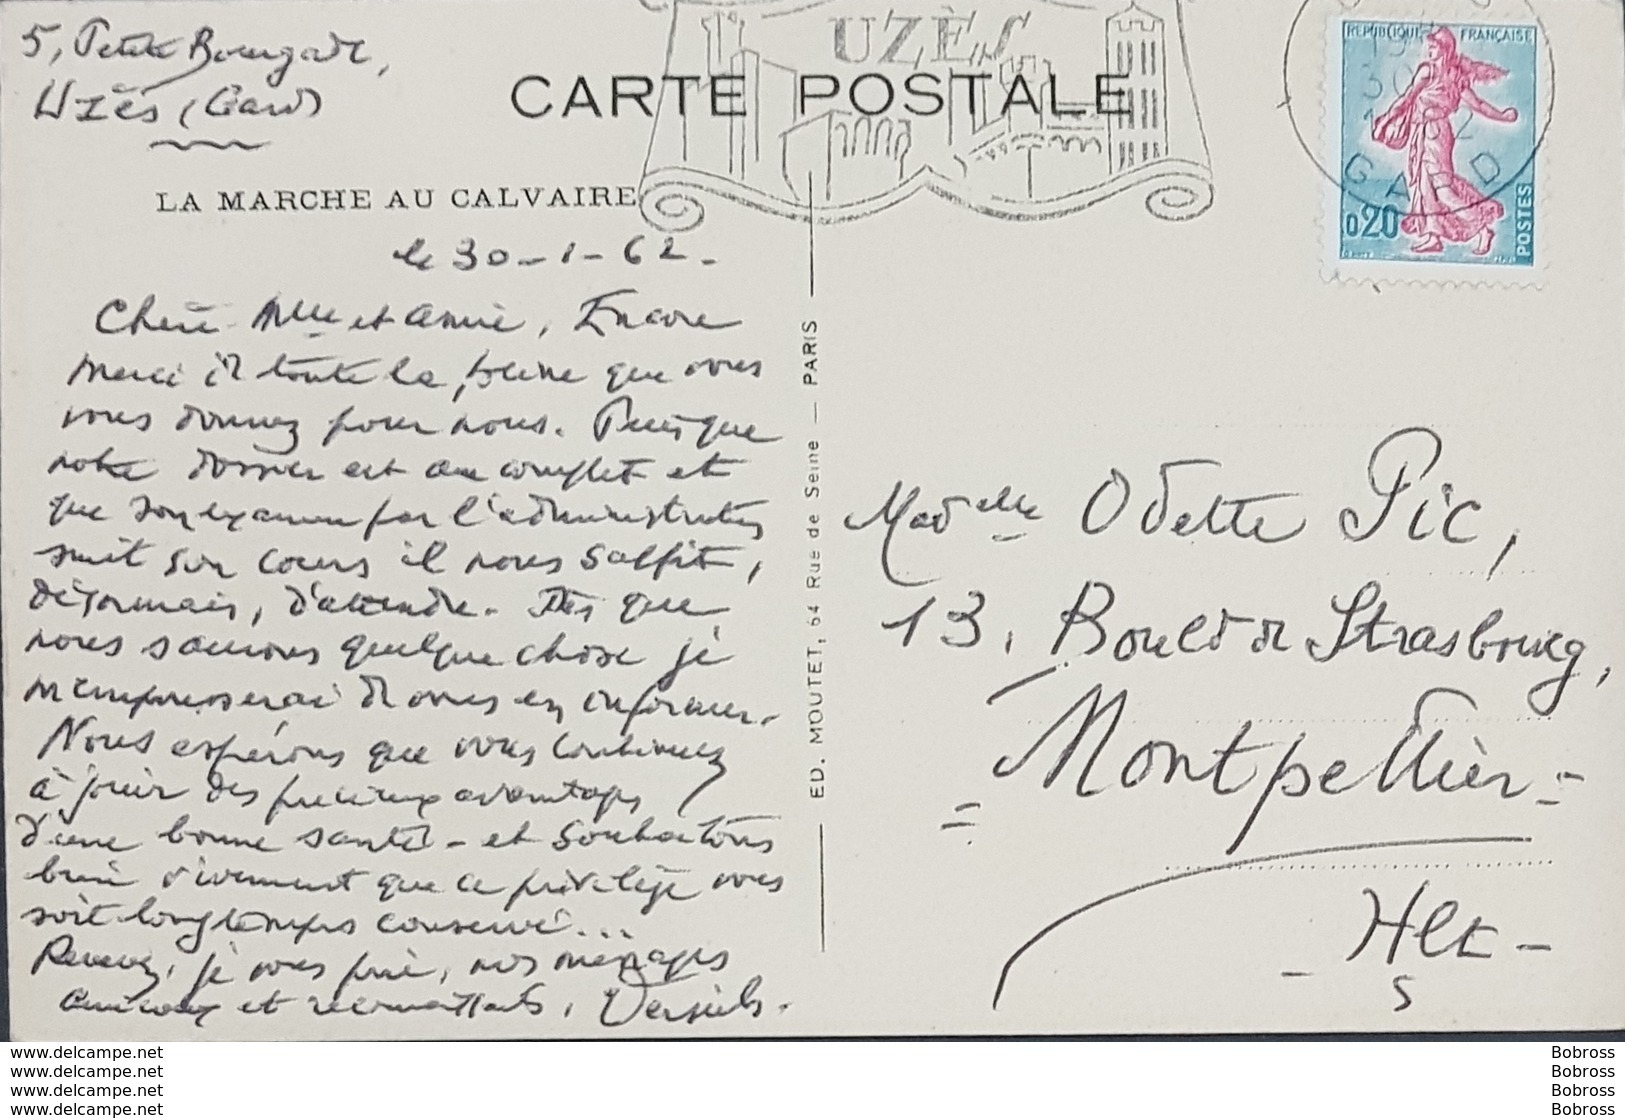 5, Petite Bourgade,
Uzès (Gard)
UZÈS
CARTE POSTALE
REPUBLIQUE FRANÇAISE
30
GARD
0,20
POSTES
LA MARCHE AU CALVAIRE
le 30-1-62.
Chère Mlle et amie, Encore
merci de toute la peine que vous
vous donnez pour nous. Puisque
notre dossier est au complet et
que son examen par l'administration
suit son cours il nous suffit,
désormais, d'attendre. Dès que
nous saurons quelque chose je
m'empresserai de vous en informer.
Nous espérons que vous continuez
à jouir des précieux avantages
d'une bonne santé - et souhaitons
bien vivement que ce privilège vous
soit longtemps conservé...
Recevez, je vous prie, nos messages
amicaux et reconnaissants.
ED. MOUTET, 64 Rue de Seine — PARIS
Madelle Odette Pic,
13, Bould de Strasbourg,
= Montpellier =
- Hlt -
S
www.delcampe.net
www.delcampe.net
www.delcampe.net
www.delcampe.net
Bobross
Bobross
Bobross
Bobross